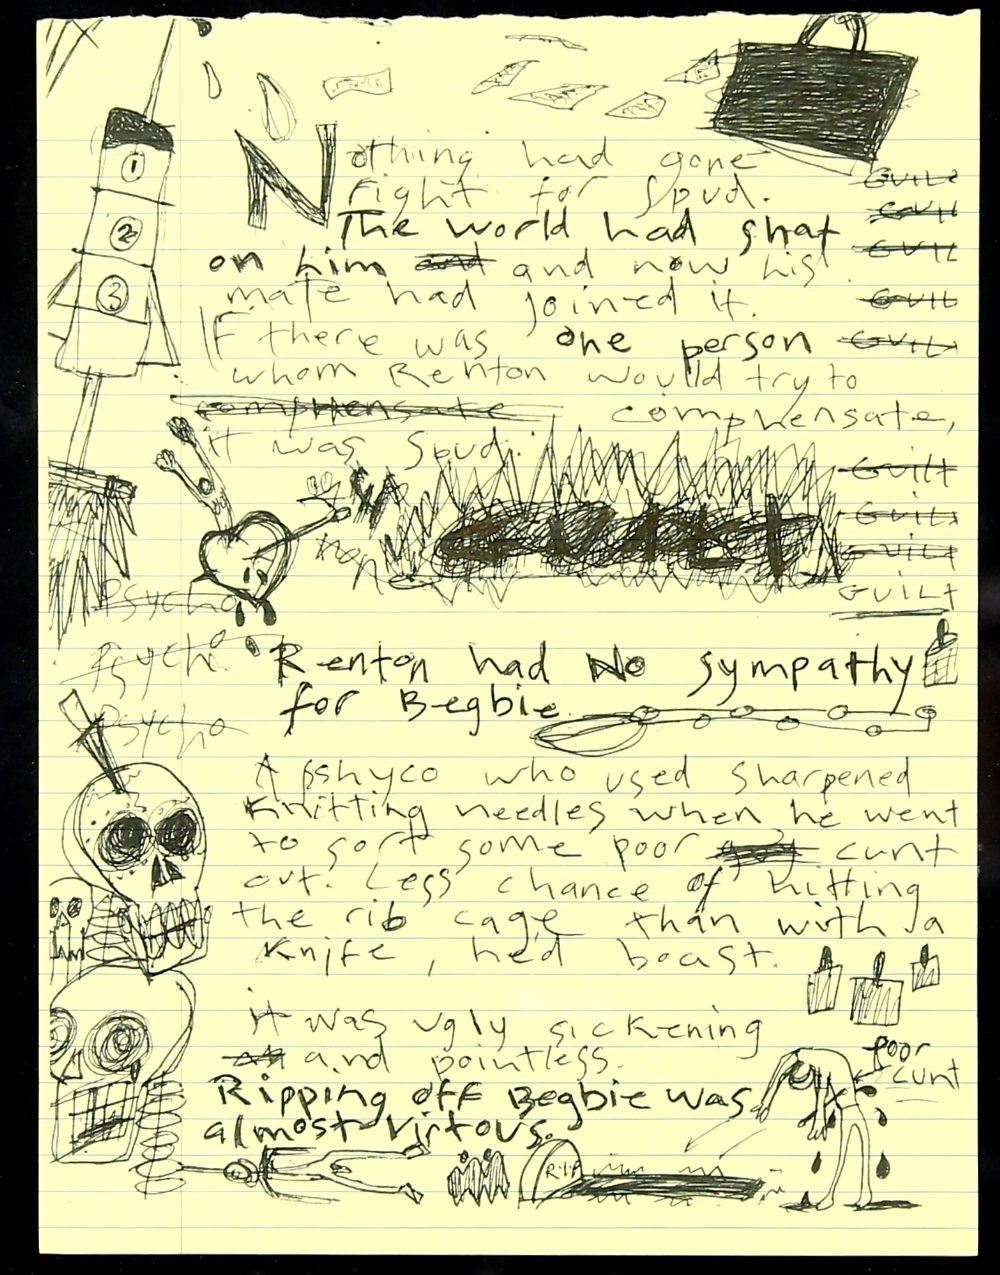 1
2
3
Nothing had gone
right for Spud.
The world had shat
on him and and now his
mate had joined it.
IF there was one person
whom Renton would try to
comphensate comphensate,
it was Spud.
GUILT
GUILT
GUILT
GUILT
GUILT
GUILT
GUILT
GUILT
GUILT
GUILT
GUILT
Psycho
Psycho
Psycho
Renton had No sympathy
for Begbie.
A pshyco who used sharpened
knitting needles when he went
to sort some poor guy cunt
out. Less chance of hitting
the rib cage than with a
knife, he'd boast.
it was ugly sickening
and pointless.
Ripping off Begbie was
almost virtous.
poor
cunt
R.I.P